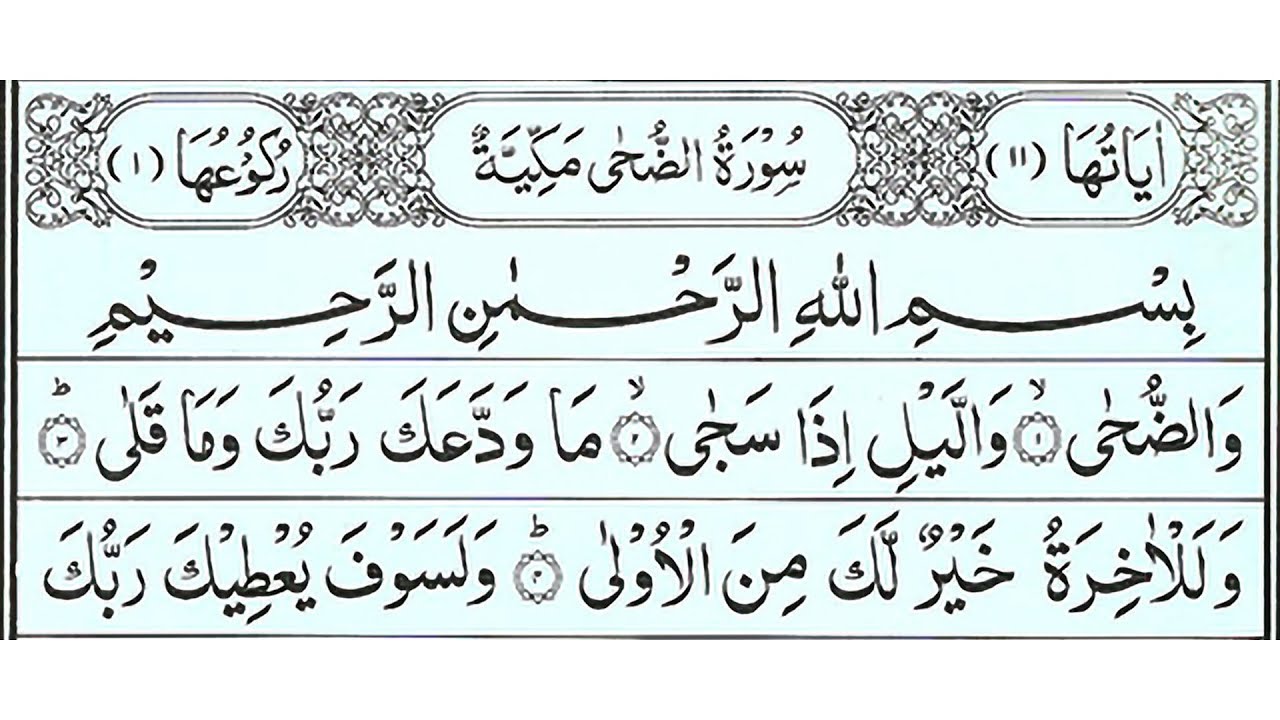 اٰيَاتُهَا (١١) سُوْرَةُ الضُّحٰى مَكِّيَّةٌ رُكُوْعُهَا (١)
بِسْمِ اللهِ الرَّحْمٰنِ الرَّحِيْمِ
وَالضُّحٰى ۙ﴿١﴾ وَالَّيْلِ اِذَا سَجٰى ۙ﴿٢﴾ مَا وَدَّعَكَ رَبُّكَ وَمَا قَلٰى ؕ﴿٣﴾
وَلَلْاٰخِرَةُ خَيْرٌ لَّكَ مِنَ الْاُوْلٰى ؕ﴿٤﴾ وَلَسَوْفَ يُعْطِيْكَ رَبُّكَ